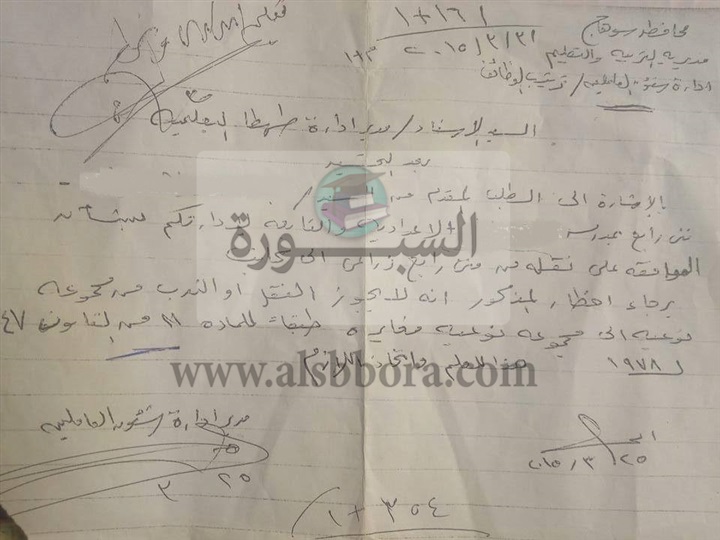 محافظة سوهاج
مديرية التربية والتعليم
ادارة شئون العاملين / ترتيب الوظائف
١ + ١٦١
٢٠١٥/٣/٣١
السيد الاستاذ / مدير ادارة طهطا التعليمية
بعد التحية
بالاشارة الى الطلب المقدم من السيد /
فنى رابع بمدرسة الاعدادية والتابعة لادارتكم بشأن
الموافقة على نقله من فنى رابع زراعى الى
برجاء اخطار المذكور انه لا يجوز النقل او الندب من مجموعة
نوعية الى مجموعة نوعية مغايرة طبقا للمادة ١١ من القانون ٤٧
لـ ١٩٧٨ هذا للعلم واتخاذ اللازم
مدير ادارة / شئون العاملين
٢٥
٣
٢٠١٥/٣/٢٥
١ + ٣٥٤
السبورة
www.alsbbora.com